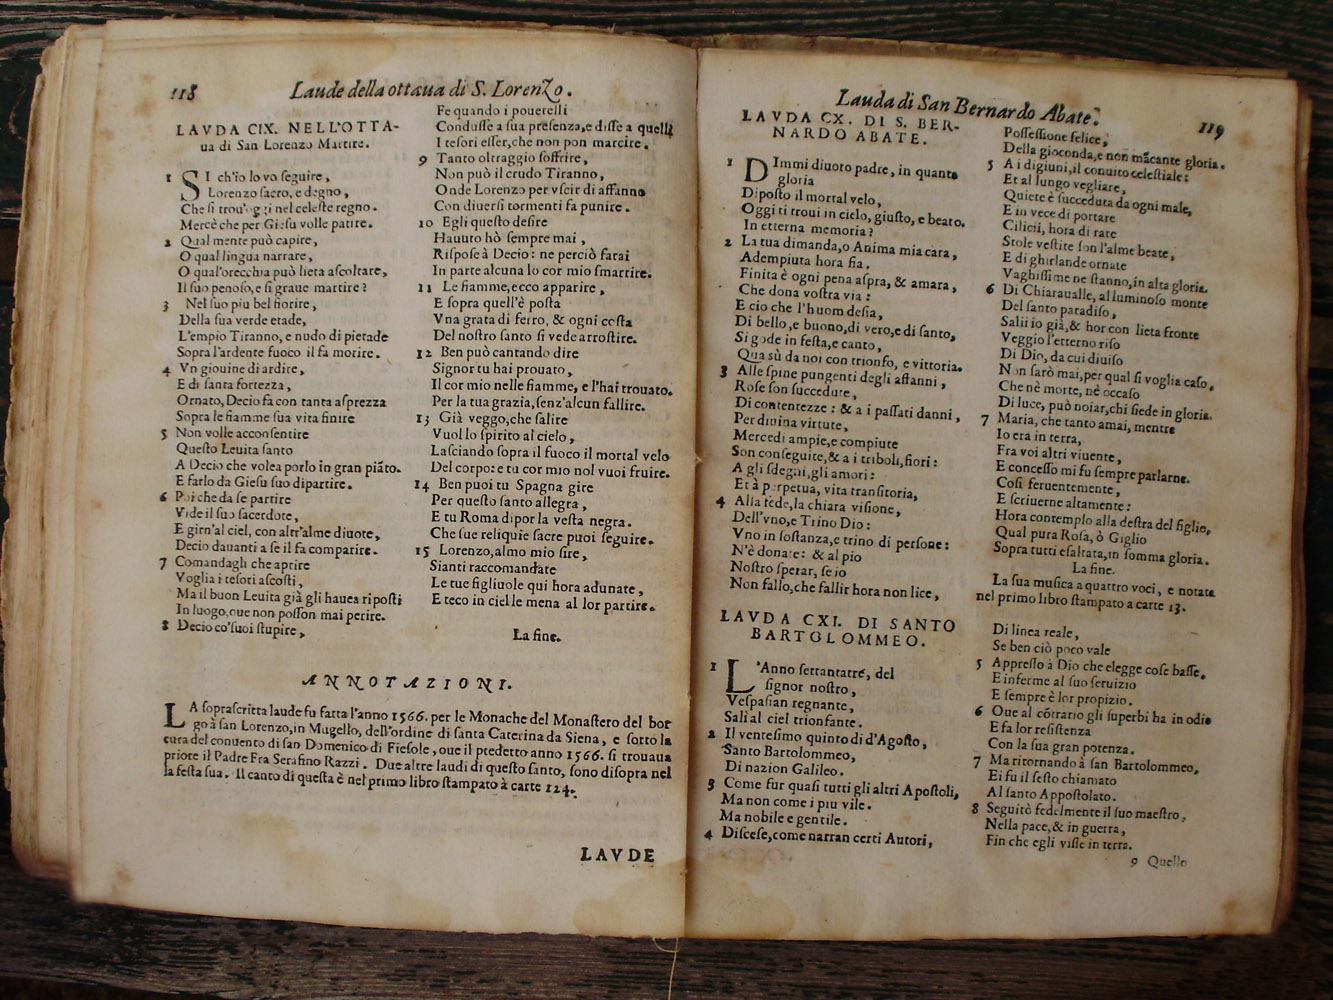 118
Laude della ottaua di S. Lorenzo.
LAVDA CIX. NELL'OTTA-
ua di San Lorenzo Martire.
1 SI ch'io lo vo ſeguire,
Lorenzo ſacro, e degno,
Che ſi trou'oggi nel celeſte regno.
Mercè che per Gieſu volle patire.
2 Qual mente può capire,
O qual lingua narrare,
O qual'orecchia può lieta aſcoltare,
Il ſuo penoſo, e ſi graue martire?
3 Nel ſuo piu bel fiorire,
Della ſua verde etade,
L'empio Tiranno, e nudo di pietade
Sopra l'ardente fuoco il fa morire.
4 Vn giouine di ardire,
E di ſanta fortezza,
Ornato, Decio fa con tanta aſprezza
Sopra le fiamme ſua vita finire
5 Non volle acconſentire
Queſto Leuita ſanto
A Decio che volea porlo in gran piãto.
E farlo da Gieſu ſuo dipartire.
6 Poi che da ſe partire
Vide il ſuo ſacerdote,
E girn'al ciel, con altr'alme diuote,
Decio dauanti a ſe il fa comparire.
7 Comandagli che aprire
Voglia i teſori aſcoſti,
Ma il buon Leuita già gli hauea ripoſti
In luogo, oue non poſſon mai perire.
8 Decio co'ſuoi ſtupire,
Fe quando i pouerelli
Conduſſe a ſua preſenza, e diſſe a quelli
I teſori eſſer, che non pon marcire.
9 Tanto oltraggio ſoffrire,
Non può il crudo Tiranno,
Onde Lorenzo per vſcir di affanno
Con diuerſi tormenti fa punire.
10 Egli queſto deſire
Hauuto hò ſempre mai,
Riſpoſe à Decio: ne perciò farai
In parte alcuna lo cor mio ſmarrire.
11 Le fiamme, ecco apparire,
E ſopra quell'è poſta
Vna grata di ferro, & ogni coſta
Del noſtro ſanto ſi vede arroſtire.
12 Ben può cantando dire
Signor tu hai prouato,
Il cor mio nelle fiamme, e l'hai trouato.
Per la tua grazia, ſenz'alcun fallire.
13 Già veggo, che ſalire
Vuol lo ſpirito al cielo,
Laſciando ſopra il fuoco il mortal velo
Del corpo: e tu cor mio nol vuoi fruire.
14 Ben puoi tu Spagna gire
Per queſto ſanto allegra,
E tu Roma dipor la veſta negra.
Che ſue reliquie ſacre puoi ſeguire.
15 Lorenzo, almo mio ſire,
Sianti raccomandate
Le tue figliuole qui hora adunate,
E teco in ciel le mena al lor partire.
La fine.
ANNOTAZIONI.
LA ſopraſcritta laude fu fatta l'anno 1566. per le Monache del Monaſtero del bor
go à ſan Lorenzo, in Mugello, dell'ordine di ſanta Caterina da Siena, e ſotto la
cura del conuento di ſan Domenico di Fieſole, oue il predetto anno 1566. ſi trouaua
priore il Padre Fra Serafino Razzi. Due altre laudi di queſto ſanto, ſono diſopra nel
la feſta ſua. Il canto di queſta è nel primo libro ſtampato à carte 124.
LAVDE
Lauda di San Bernardo Abate.
119
LAVDA CX. DI S. BER-
NARDO ABATE.
1 DImmi diuoto padre, in quanta
gloria
Dipoſto il mortal velo,
Oggi ti troui in cielo, giuſto, e beato.
In etterna memoria?
2 La tua dimanda, o Anima mia cara,
Adempiuta hora fia.
Finita è ogni pena aſpra, & amara,
Che dona voſtra via:
E cio che l'huom deſia,
Di bello, e buono, di vero, e di ſanto,
Si gode in feſta, e canto,
Qua sù da noi con trionfo, e vittoria.
3 Alle ſpine pungenti degli affanni,
Roſe ſon ſuccedute,
Di contentezze: & a i paſſati danni,
Per diuina virtute,
Mercedi ampie, e compiute
Son conſeguite, & a i triboli, fiori:
A gli ſdegni, gli amori:
Et à perpetua, vita tranſitoria,
4 Alla fede, la chiara viſione,
Dell'vno, e Trino Dio:
Vno in ſoſtanza, e trino di perſone:
N'è donate: & al pio
Noſtro ſperar, ſe io
Non fallo, che fallir hora non lice,
Poſſeſſione felice,
Della gioconda, e non mãcante gloria.
5 A i digiuni, il conuito celeſtiale:
Et al lungo vegliare,
Quiete è ſucceduta da ogni male,
E in vece di portare
Cilicij, hora di rare
Stole veſtite ſon l'alme beate,
E di ghirlande ornate
Vaghiſſime ne ſtanno, in alta gloria.
6 Di Chiaraualle, al luminoſo monte
Del ſanto paradiſo,
Salii io già, & hor con lieta fronte
Veggio l'etterno riſo
Di Dio, da cui diuiſo
Non ſarò mai, per qual ſi voglia caſo,
Che nè morte, nè occaſo
Di luce, può noiar, chi ſiede in gloria.
7 Maria, che tanto amai, mentre
Io era in terra,
Fra voi altri viuente,
E conceſſo mi fu ſempre parlarne.
Coſi feruentemente,
E ſcriuerne altamente:
Hora contemplo alla deſtra del figlio,
Qual pura Roſa, ò Giglio
Sopra tutti eſaltata, in ſomma gloria.
La fine.
La ſua muſica a quattro voci, e notata
nel primo libro ſtampato a carte 13.
LAVDA CXI. DI SANTO
BARTOLOMMEO.
1 L'Anno ſettantatrè, del
ſignor noſtro,
Veſpaſian regnante,
Salì al ciel trionfante.
2 Il venteſimo quinto di d'Agoſto,
Santo Bartolommeo,
Di nazion Galileo.
3 Come fur quaſi tutti gli altri Apoſtoli,
Ma non come i piu vile.
Ma nobile e gentile.
4 Diſceſe, come narran certi Autori,
Di linea reale,
Se ben ciò poco vale
5 Appreſſo à Dio che elegge coſe baſſe,
E inferme al ſuo ſeruizio
E ſempre è lor propizio.
6 Oue al cõtrario gli ſuperbi ha in odio
E fa lor reſiſtenza
Con la ſua gran potenza.
7 Ma ritornando à ſan Bartolommeo,
Ei fu il ſeſto chiamato
Al ſanto Appoſtolato.
8 Seguitò fedelmente il ſuo maeſtro,
Nella pace, & in guerra,
Fin che egli viſſe in terra.
9 Quello